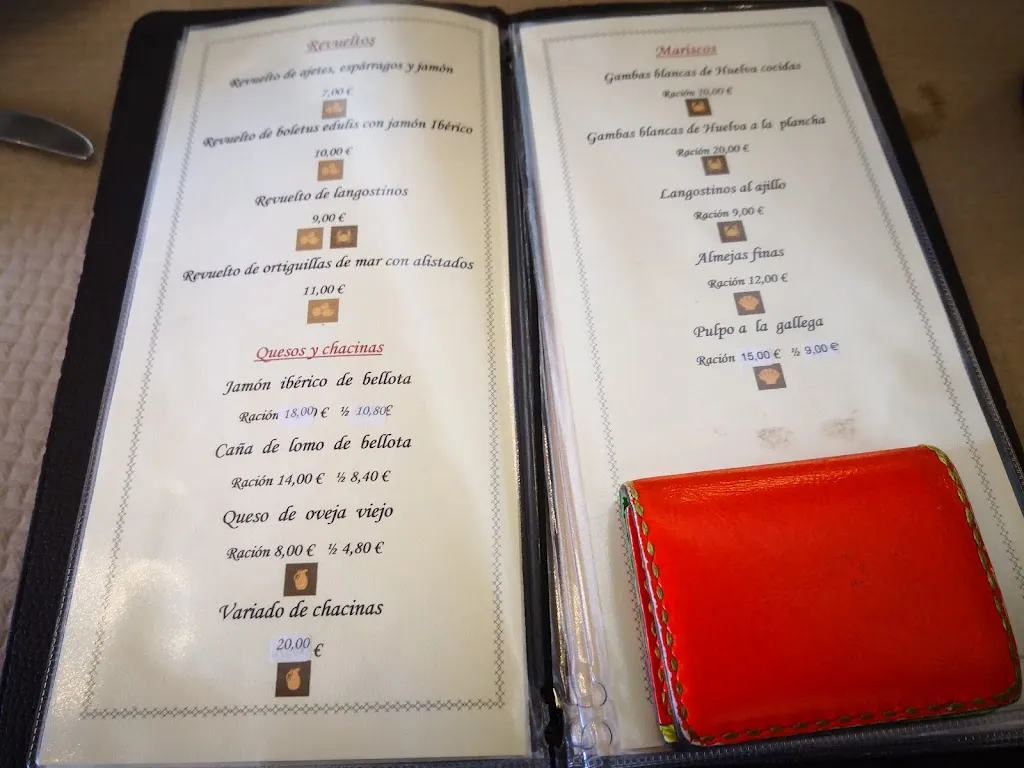 Revueltos
Revuelto de ajetes, espárragos y jamón
7,00 €
Revuelto de boletus edulis con jamón Ibérico
10,00 €
Revuelto de langostinos
9,00 €
Revuelto de ortiguillas de mar con alistados
11,00 €
Quesos y chacinas
Jamón ibérico de bellota
Ración 18,00 € ½ 10,80€
Caña de lomo de bellota
Ración 14,00 € ½ 8,40 €
Queso de oveja viejo
Ración 8,00 € ½ 4,80 €
Variado de chacinas
20,00 €
Mariscos
Gambas blancas de Huelva cocidas
Ración €
Gambas blancas de Huelva a la plancha
Ración 20,00 €
Langostinos al ajillo
Ración 9,00 €
Almejas finas
Ración 12,00 €
Pulpo a la gallega
Ración 15,00 € ½ 9,00 €